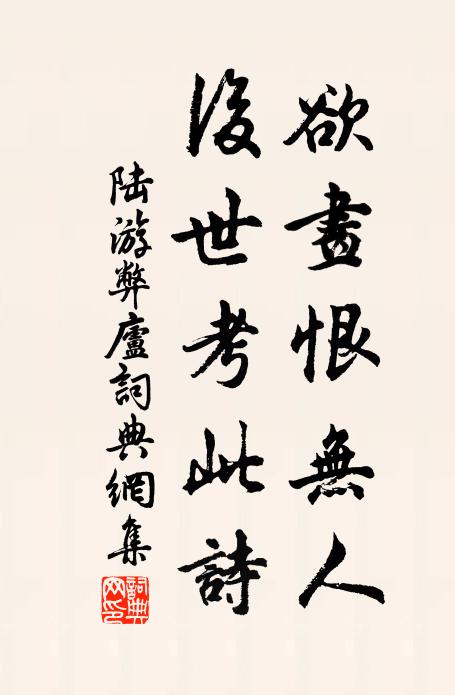 欲畫恨無人
後世考此詩
陸游弊廬詞典網集
詞典網印